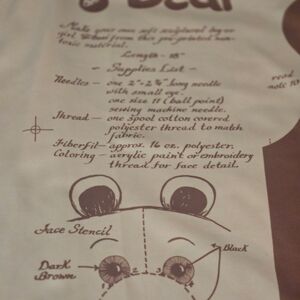 Bear
Make your own soft sculptured boy or
girl Bear from this pre-printed non-
toxic material.
Length - 18"
- Supplies List -
Needles - one 2"-2½" long needle
with small eye.
one size 11 (ball point)
sewing machine needle.
Thread - one spool cotton covered
polyester thread to match
fabric.
Fiberfil - approx. 16 oz. polyester.
Coloring - acrylic paint or embroidery
thread for face detail.
read
note 10
Face Stencil
Black
Dark
Brown